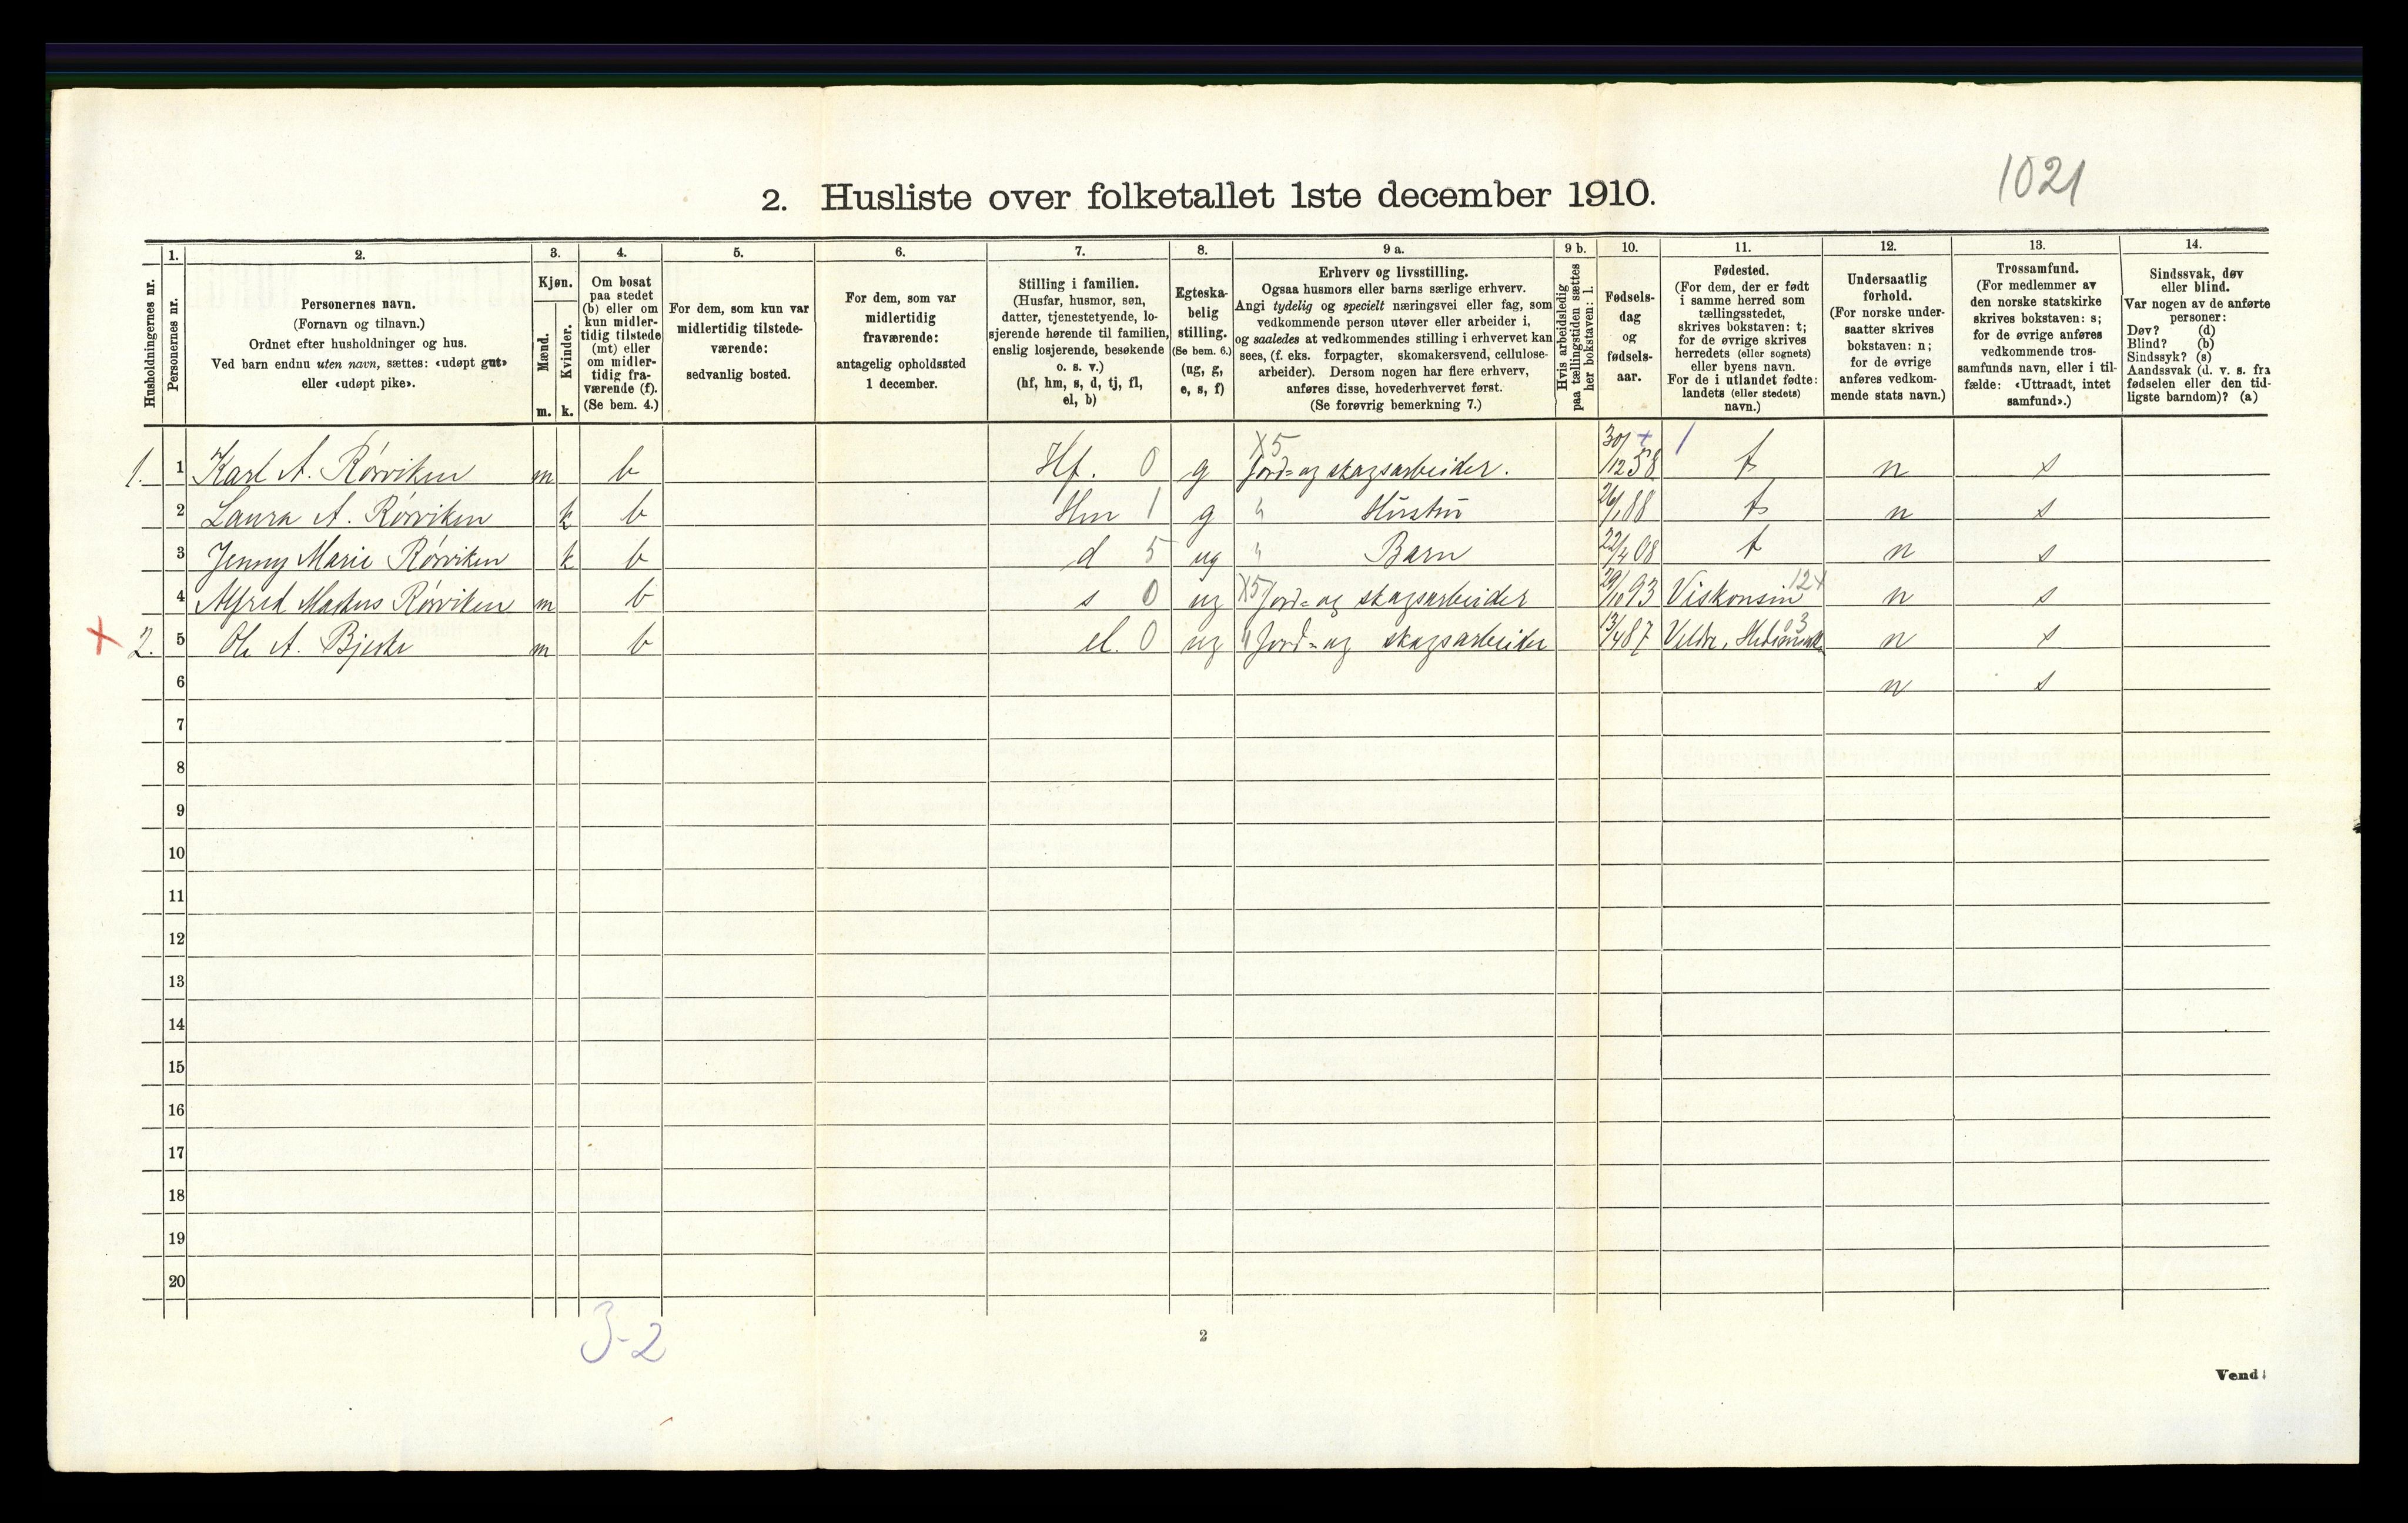 1021
2. Husliste over folketallet 1ste december 1910.
Husholdningernes nr.
1.
Personernes nr.
2.
Personernes navn.
(Fornavn og tilnavn.)
Ordnet efter husholdninger og hus.
Ved barn endnu uten navn, sættes: «udøpt gut»
eller «udøpt pike».
3.
Kjøn.
Mænd.
m.
Kvinder.
k.
4.
Om bosat
paa stedet
(b) eller om
kun midler-
tidig tilstede
(mt) eller
om midler-
tidig fra-
værende (f).
(Se bem. 4.)
5.
For dem, som kun var
midlertidig tilstede-
værende:
sedvanlig bosted.
6.
For dem, som var
midlertidig
fraværende:
antagelig opholdssted
1 december.
7.
Stilling i familien.
(Husfar, husmor, søn,
datter, tjenestetyende, lo-
sjerende hørende til familien,
enslig losjerende, besøkende
o. s. v.)
(hf, hm, s, d, tj, fl,
el, b)
8.
Egteska-
belig
stilling.
(Se bem. 6.)
(ug, g,
e, s, f)
9 a.
Erhverv og livsstilling.
Ogsaa husmors eller barns særlige erhverv.
Angi tydelig og specielt næringsvei eller fag, som
vedkommende person utøver eller arbeider i,
og saaledes at vedkommendes stilling i erhvervet kan
sees, (f. eks. forpagter, skomakersvend, cellulose-
arbeider). Dersom nogen har flere erhverv,
anføres disse, hovederhvervet først.
(Se forøvrig bemerkning 7.)
9 b.
Hvis arbeidsledig
paa tællingstiden sættes
her bokstaven: l.
10.
Fødsels-
dag
og
fødsels-
aar.
11.
Fødested.
(For dem, der er født
i samme herred som
tællingsstedet,
skrives bokstaven: t;
for de øvrige skrives
herredets (eller sognets)
eller byens navn.
For de i utlandet fødte:
landets (eller stedets)
navn.)
12.
Undersaatlig
forhold.
(For norske under-
saatter skrives
bokstaven: n;
for de øvrige
anføres vedkom-
mende stats navn.)
13.
Trossamfund.
(For medlemmer av
den norske statskirke
skrives bokstaven: s;
for de øvrige anføres
vedkommende tros-
samfunds navn, eller i til-
fælde: «Uttraadt, intet
samfund».)
14.
Sindssvak, døv
eller blind.
Var nogen av de anførte
personer:
Døv? (d)
Blind? (b)
Sindssyk? (s)
Aandssvak (d. v. s. fra
fødselen eller den tid-
ligste barndom)? (a)
1. 1 Karl A. Rørviken m b Hf. 0 g X5 Jord= og skogsarbeider. 30/12 58 t n s
2 Laura A. Rørviken k b Hm 1 g " Hustru 26/1 88 t n s
3 Jenny Marie Rørviken k b d 5 ug " Barn 08 t n s
4 Alfred Rørviken m b s 0 ug X5 Jord= og skogsarbeider 29/10 93 Viskonsin 12+ n s
+ 2. 5 Ole A. m b el. 0 ug " Jord= og skogsarbeider 13/4 87 Veldre, Hedemark 03 n s
6 n s
7
8
9
10
11
12
13
14
15
16
17
18
19
20
3-2
2
Vend!